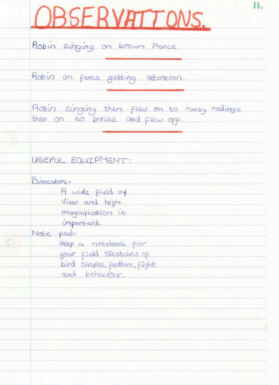 11.
OBSERVATIONS.
Robin singing on brown fence.
Robin on fence getting attention.
Robin singing then flew on to railings
then on to and flew off.
USEFUL EQUIPMENT:
Binoculars:
A wide field of
view and high
magnification is
important.
Note pad:
Keep a notebook for
your field sketches of
bird shapes, pattern, flight
and behaviour.